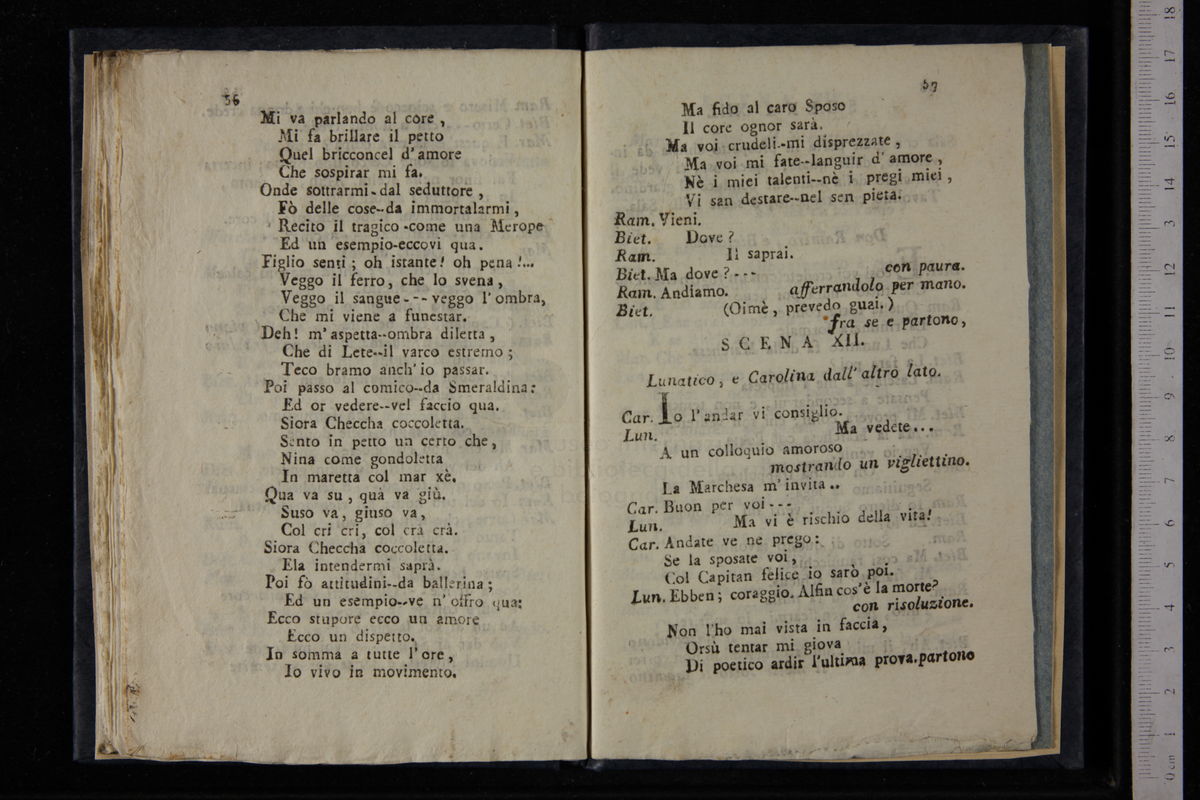 56
Mi va parlando al core,
Mi fa brillare il petto
Quel bricconcel d'amore
Che sospirar mi fa.
Onde sottrarmi-dal seduttore,
Fò delle cose--da immortalarmi,
Recito il tragico-come una Merope
Ed un esempio-eccovi qua.
Figlio senti; oh istante! oh pena!...
Veggo il ferro, che lo svena,
Veggo il sangue--- veggo l'ombra,
Che mi viene a funestar.
Deh! m'aspetta--ombra diletta,
Che di Lete--il varco estremo;
Teco bramo anch'io passar.
Poi passo al comico--da Smeraldina:
Ed or vedere--vel faccio qua.
Siora Checcha coccoletta.
Sento in petto un certo che,
Nina come gondoletta
In maretta col mar xè.
Qua va su, quà va giù.
Suso va, giuso va,
Col cri cri, col crà crà.
Siora Checcha coccoletta.
Ela intendermi saprà.
Poi fò attitudini--da ballerina;
Ed un esempio--ve n'offro qua:
Ecco stupore ecco un amore
Ecco un dispetto.
In somma a tutte l'ore,
Io vivo in movimento.
57
Ma fido al caro Sposo
Il core ognor sarà.
Ma voi crudeli--mi disprezzate,
Ma voi mi fate--languir d'amore,
Nè i miei talenti--nè i pregi miei,
Vi san destare--nel sen pietà.
Ram. Vieni.
Biet. Dove?
Ram. Il saprai.
Biet. Ma dove?--- con paura.
Ram. Andiamo. afferrandolo per mano.
Biet. (Oimè, prevedo guai.)
fra se e partono,
SCENA XII.
Lunatico, e Carolina dall'altro lato.
Car. Io l'andar vi consiglio.
Lun. Ma vedete...
A un colloquio amoroso
mostrando un vigliettino.
La Marchesa m'invita..
Car. Buon per voi---
Lun. Ma vi è rischio della vita!
Car. Andate ve ne prego:
Se la sposate voi,
Col Capitan felice io sarò poi.
Lun. Ebben; coraggio. Alfin cos'è la morte?
con risoluzione.
Non l'ho mai vista in faccia,
Orsù tentar mi giova
Di poetico ardir l'ultima prova. partono